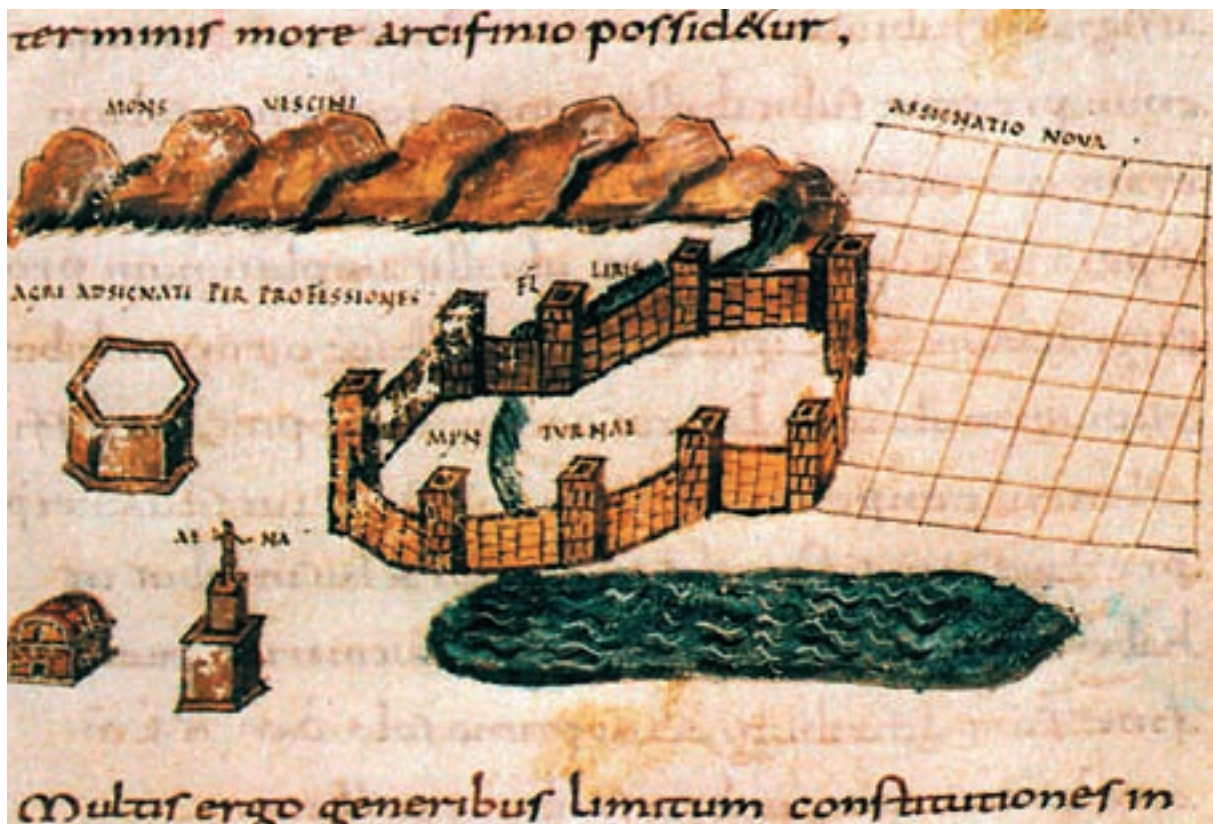 terminis more arcifinio possidetur,
MONS VESCINI
ASSIGNATIO NOVA
FL LIRIS
AGRI ADSIGNATI PER PROFESSIONES
MIN TURNAE
AE NA
Multis ergo generibus limitum constitutiones in